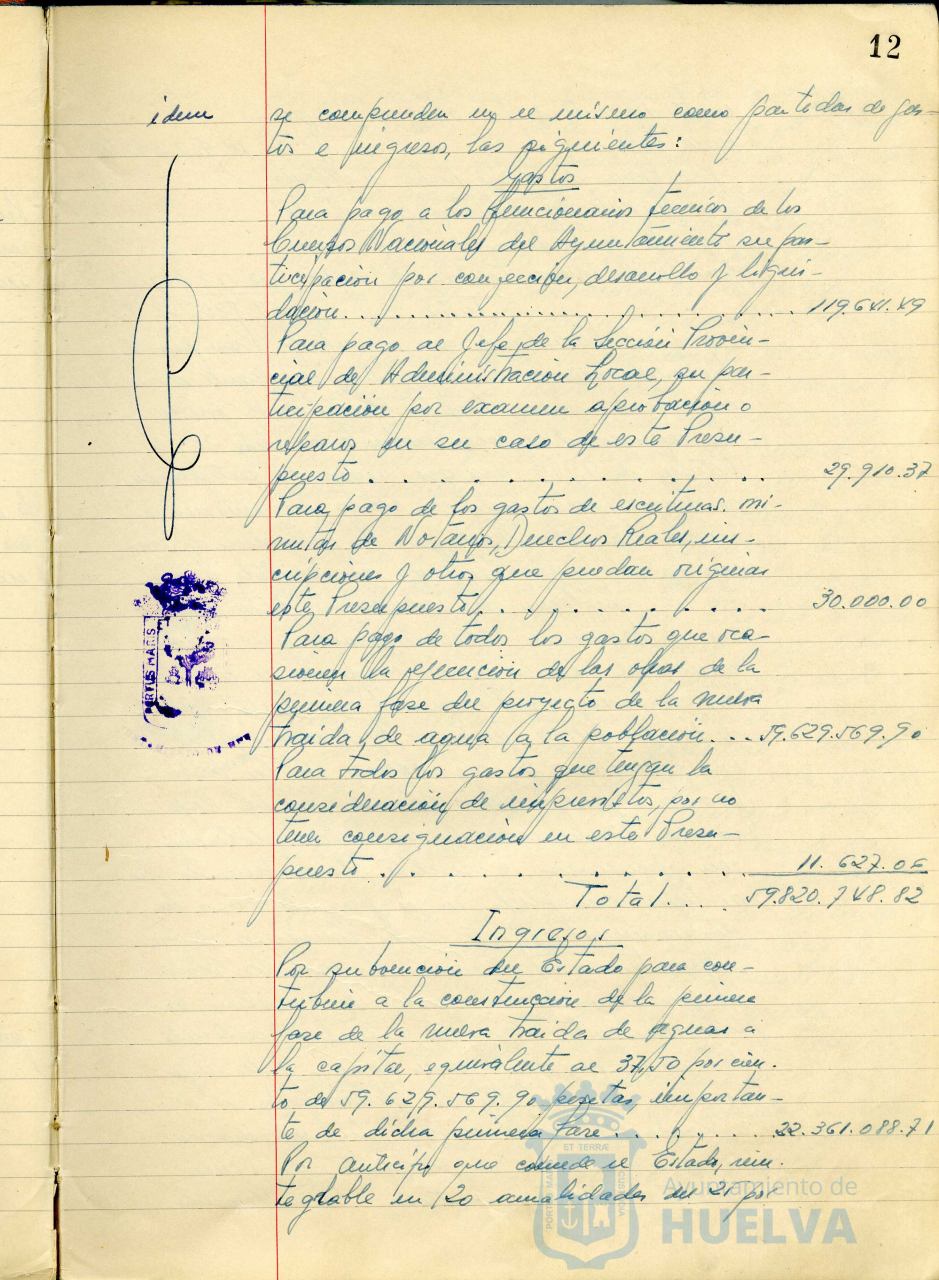 12
idem
se comprenden en el mismo como partidas de gas-
tos e ingresos, las siguientes:
Gastos
Para pago a los funcionarios tecnicos de los
Cuerpos Nacionales del Ayuntamiento su par-
ticipación por confección, desarrollo y liqui-
dación 119.641.49
Para pago al Jefe de la Sección Provin-
cial de Administración Local, su par-
ticipación por examen aprobación o
reparos en su caso de este Presu-
puesto 29.910.37
Para pago de los gastos de escrituras, mi-
nutas de Notarios, Derechos Reales, ins-
cripciones y otros que puedan originar
este Presupuesto 30.000.00
Para pago de todos los gastos que oca-
sionen la ejecución de las obras de la
primera fase del proyecto de la nueva
traida de agua a la población... 59.629.569.90
Para todos los gastos que tengan la
consideración de imprevistos, por no
tener consignación en este Presu-
puesto 11.627.06
Total.... 59.820.748.82
Ingresos
Por subvención del Estado para con-
tribuir a la construcción de la primera
fase de la nueva traida de aguas a
la capital, equivalente al 37,50 por cien-
to de 59.629.569.90 pesetas, importan-
te de dicha primera fase 22.361.088.71
Por anticipo que concede el Estado, rein-
tegrable en 20 anualidades al 2% por
PORTUS MARIS
ET TERRÆ
Ayuntamiento de
HUELVA